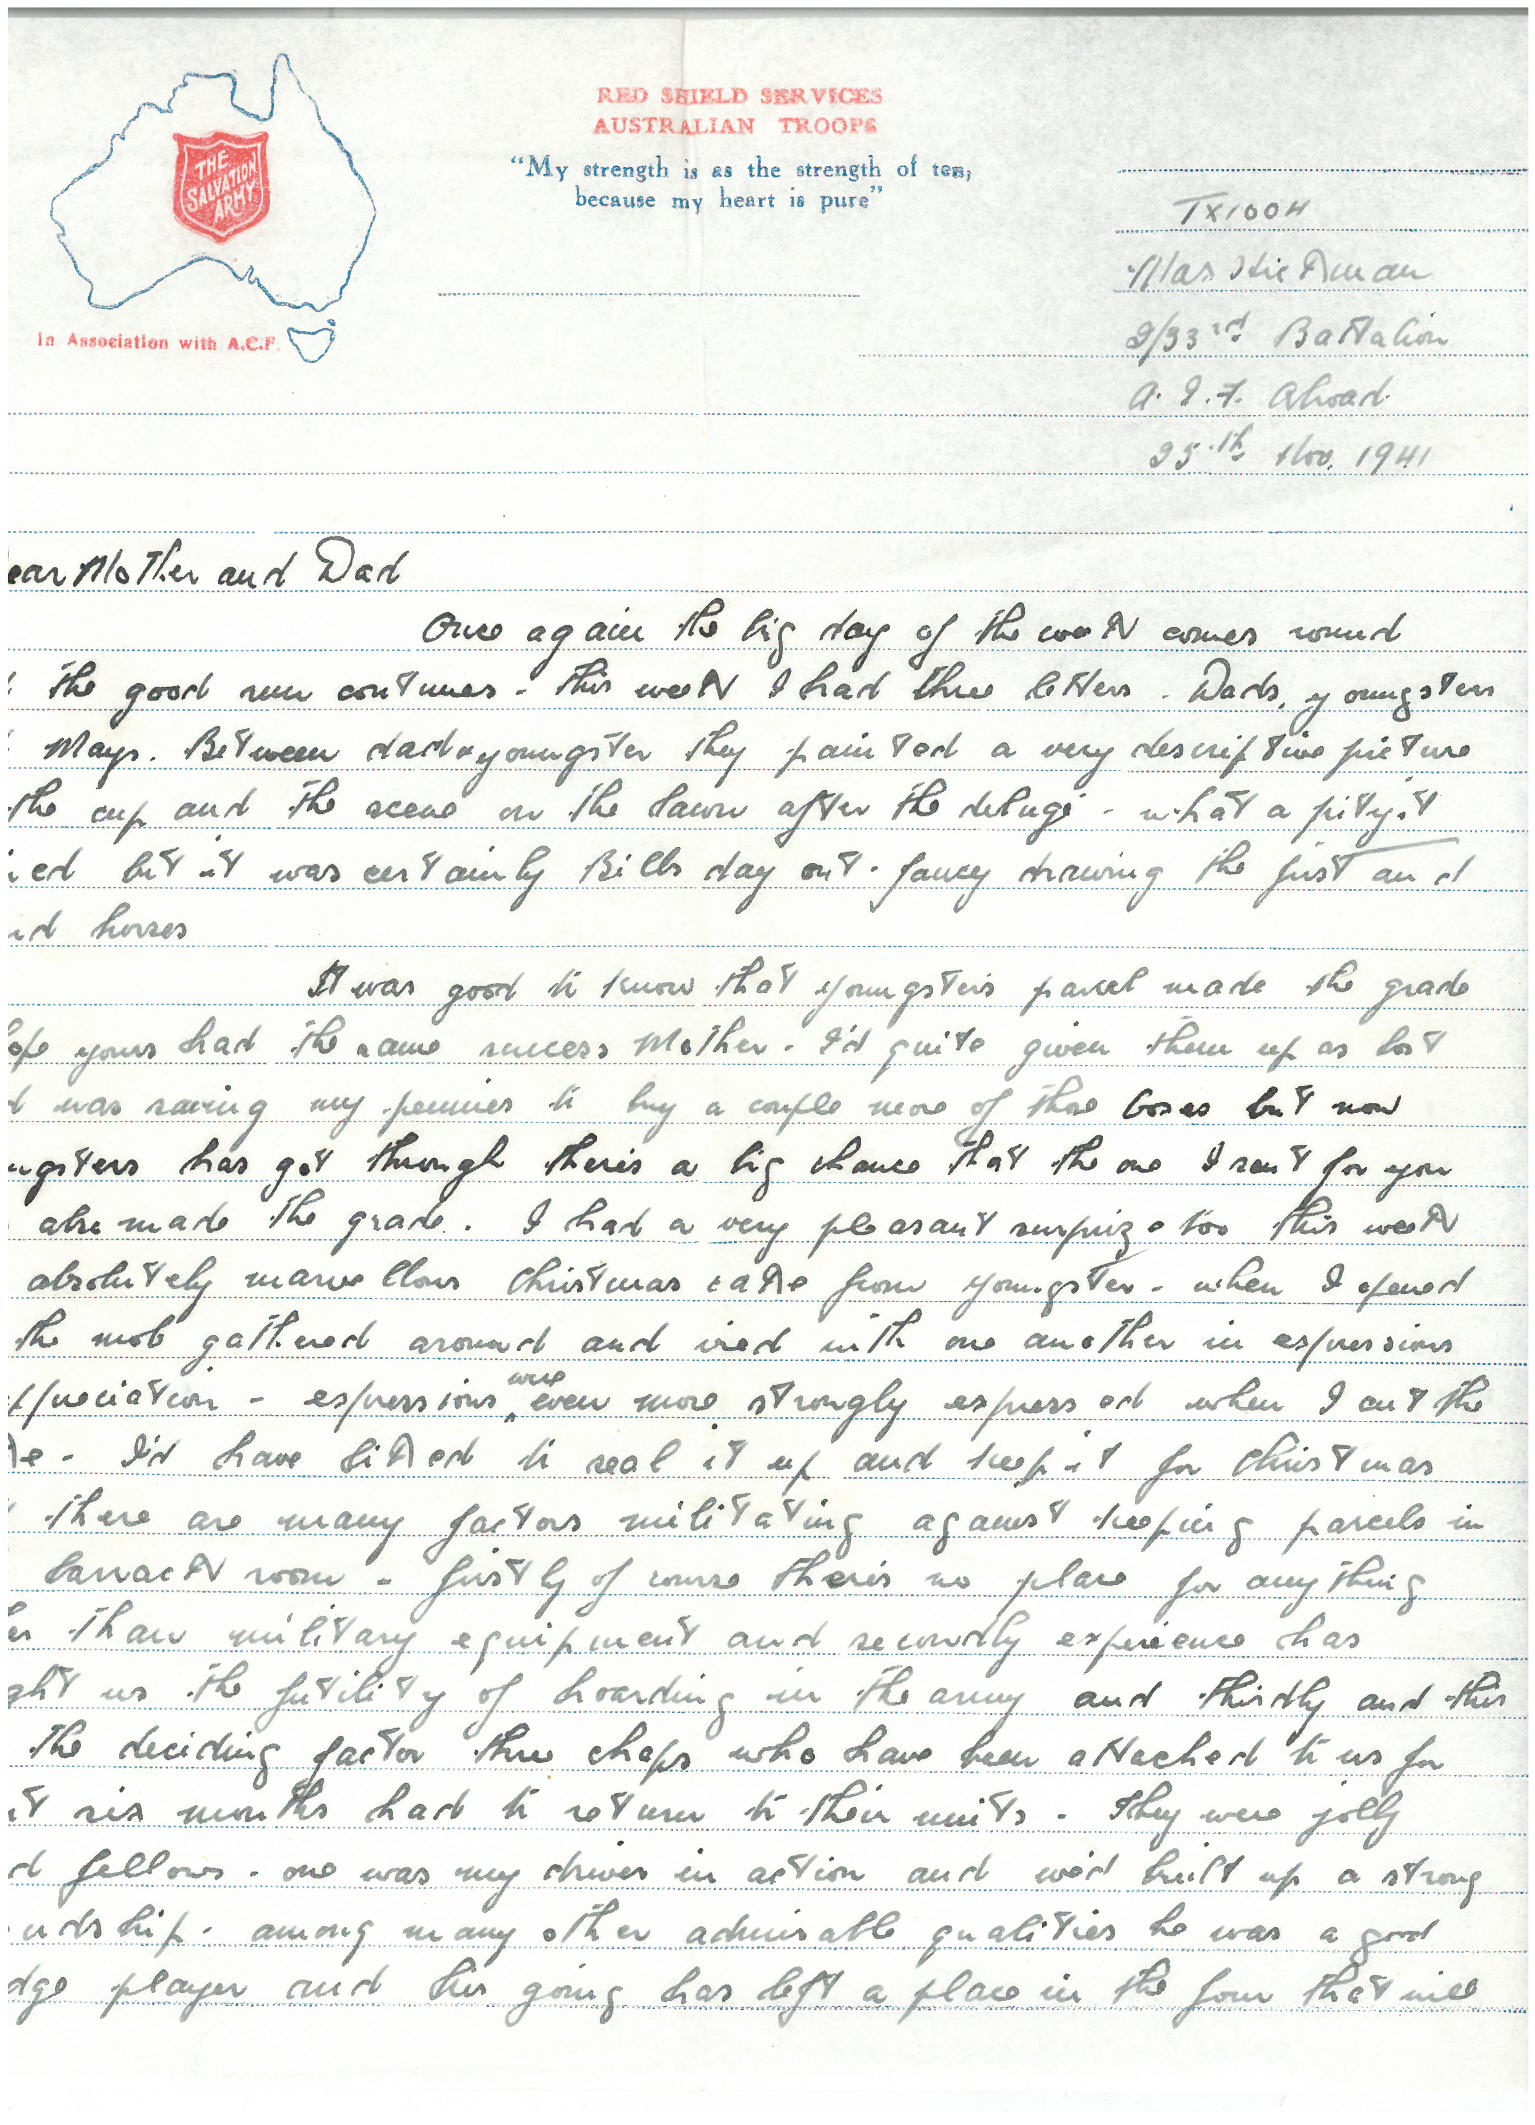 RED SHIELD SERVICES
AUSTRALIAN TROOPS
"My strength is as the strength of ten,
because my heart is pure"
THE
SALVATION
ARMY
In Association with A.C.F.
TX1004
Max Hickman
2/33rd Battalion
A.I.F. Abroad.
25th Nov. 1941
ear Mother and Dad
Once again the big day of the week comes round
the good run continues - this week I had three letters. Dads, youngsters
Mays. Between dad & youngster they painted a very descriptive picture
the cup and the scene on the lawn after the deluge - what a pity it
ed but it was certainly Bills day out. fancy drawing the first and
nd horses
It was good to know that youngsters parcel made the grade
ope yours had the same success Mother. I'd quite given them up as lost
d was saving my pennies to buy a couple more of those boxes but now
ngsters has got through there's a big chance that the one I sent for you
also made the grade. I had a very pleasant surprize too this week
absolutely marvellous Christmas cake from youngster - when I opened
the mob gathered around and vied with one another in expressions
ppreciation - expressions were even more strongly expressed when I cut the
ke - I'd have liked to seal it up and keep it for Christmas
there are many factors militating against keeping parcels in
barrack room - firstly of course there's no place for anything
er than military equipment and secondly experience has
ght us the futility of hoarding in the army and thirdly and this
the deciding factor three chaps who have been attached to us for
ut six months had to return to their units. They were jolly
d fellows - one was my driver in action and we'd built up a strong
ndship - among many other admirable qualities he was a good
dge player and his going has left a place in the four that will